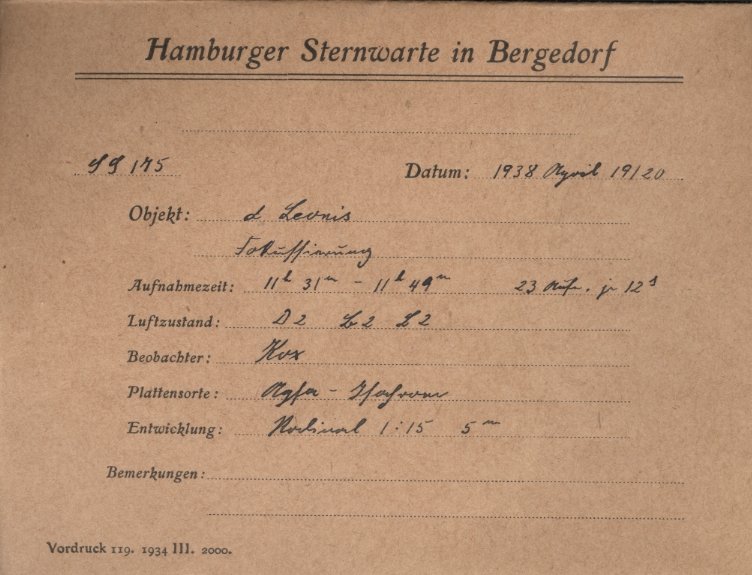 Hamburger Sternwarte in Bergedorf
SS 175 Datum: 1938 April 19/20
Objekt: d Leonis
Fokussierung
Aufnahmezeit: 11h 31m - 11h 49m 23 Aufn. je 12s
Luftzustand: D2 L2
Beobachter: Kox
Plattensorte: Agfa - Isochrom
Entwicklung: Rodinal 1:15 5m
Bemerkungen:
Vordruck 119. 1934 III. 2000.